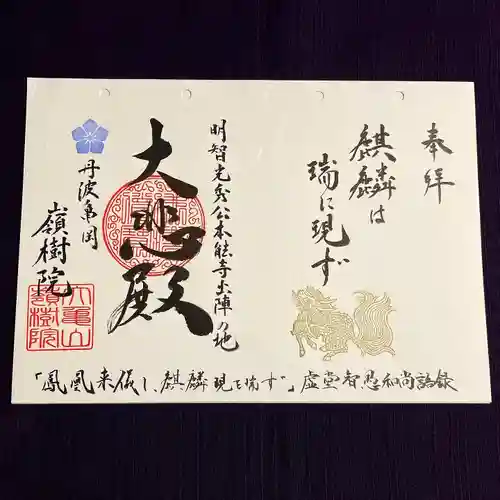 奉拝
麒麟は
瑞に現ず
明智光秀公本能寺出陣の地
大悲殿
丹波亀岡
嶺樹院
大亀山
嶺樹院
「鳳凰来儀し、麒麟現を瑞ず」虚堂智愚和尚語録